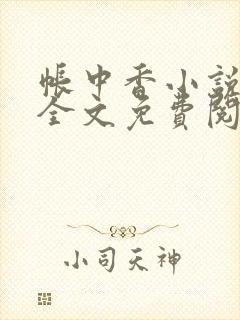 帳中香小説
全文免費閱
小司天神